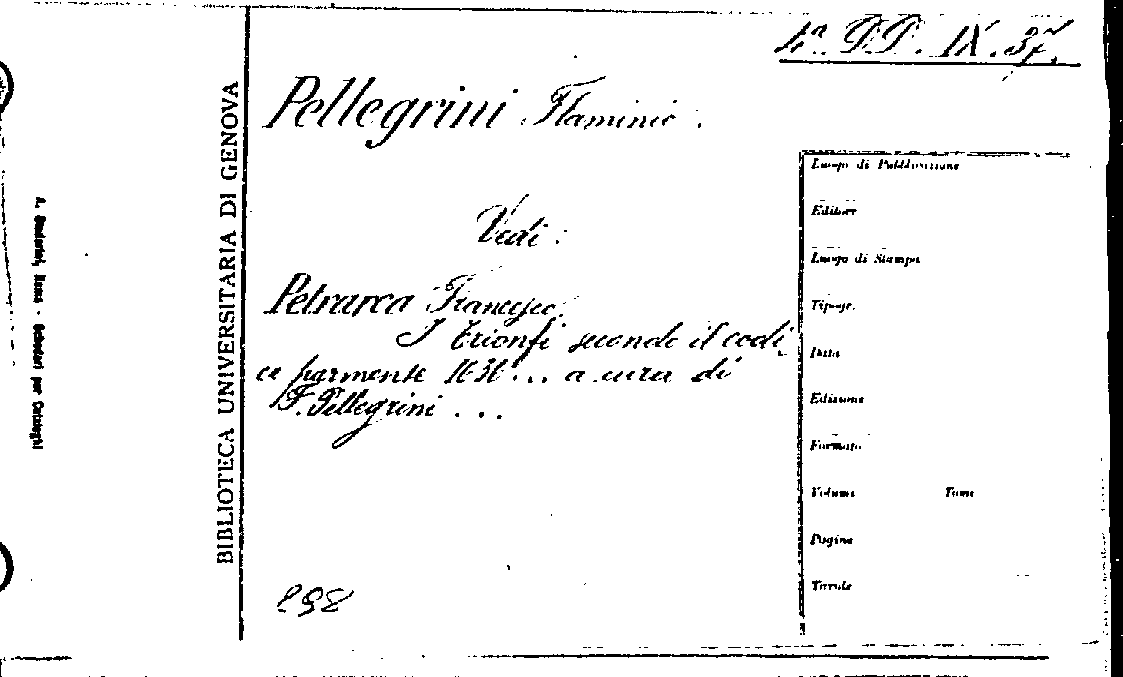 4ª. DD. IX. 37.
Pellegrini Flaminio.
Vedi:
Petrarca Francesco.
I trionfi secondo il codi
ce parmense 1636... a cura di
F. Pellegrini ...
298
BIBLIOTECA UNIVERSITARIA DI GENOVA
Roma - Schedari per Cataloghi
Luogo di Pubblicazione
Editore
Luogo di Stampa
Tipogr.
Data
Edizione
Formato
Volume Tomo
Pagine
Tavole